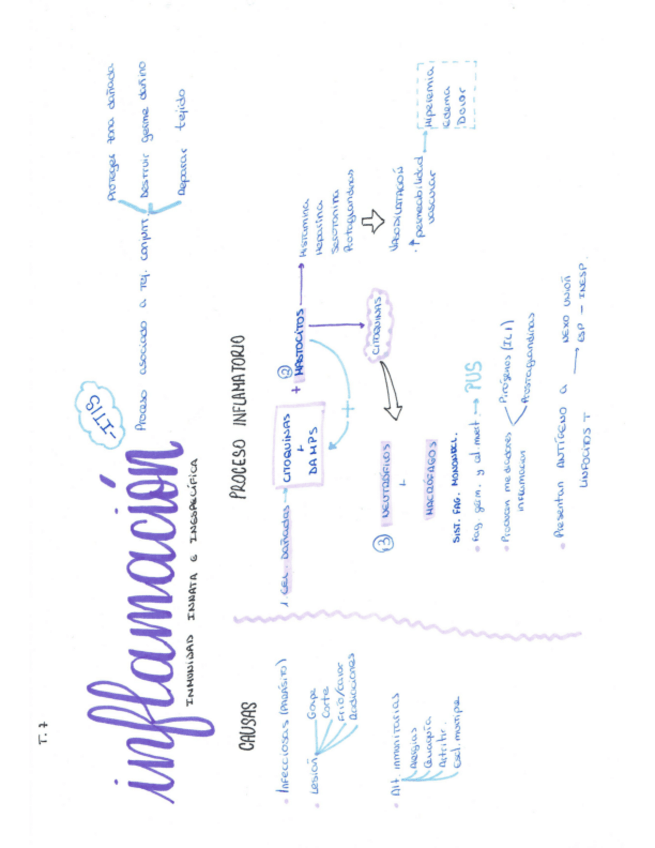 T. 7
inflamación
-ITIS
INMUNIDAD INNATA E INESPECÍFICA
Proceso asociado a Tej. conjunt.
Proteger zona dañada
Destruir germe dañino
Reparar tejido
CAUSAS
Infecciosas (parásito)
Lesión
Golpe
Corte
Frío/calor
Radiaciones
Alt. inmunitarias
Alergias
Artitr.
Escl. multiple
PROCESO INFLAMATORIO
1 CEL. DAÑADAS
CITOQUINAS
+
DAMPS
+
② + MASTOCITOS
Histamina
Heparina
Serotonina
Protaglandinas
VASODILATACIÓN
· ↑ permeabilidad
vascular
Hiperemia
Edema
Dolor
CITOQUINAS
③ NEUTRÓFILOS
+
MACRÓFAGOS
SIST. FAG. MONONUCL.
Fag. germ. y cél muert. → PUS
Producen mediadores
inflamación
Pirógenos (IL1)
Prostaglandinas
Presentan ANTÍGENO a
LINFOCITOS T
→ NEXO UNIÓN
ESP - INESP